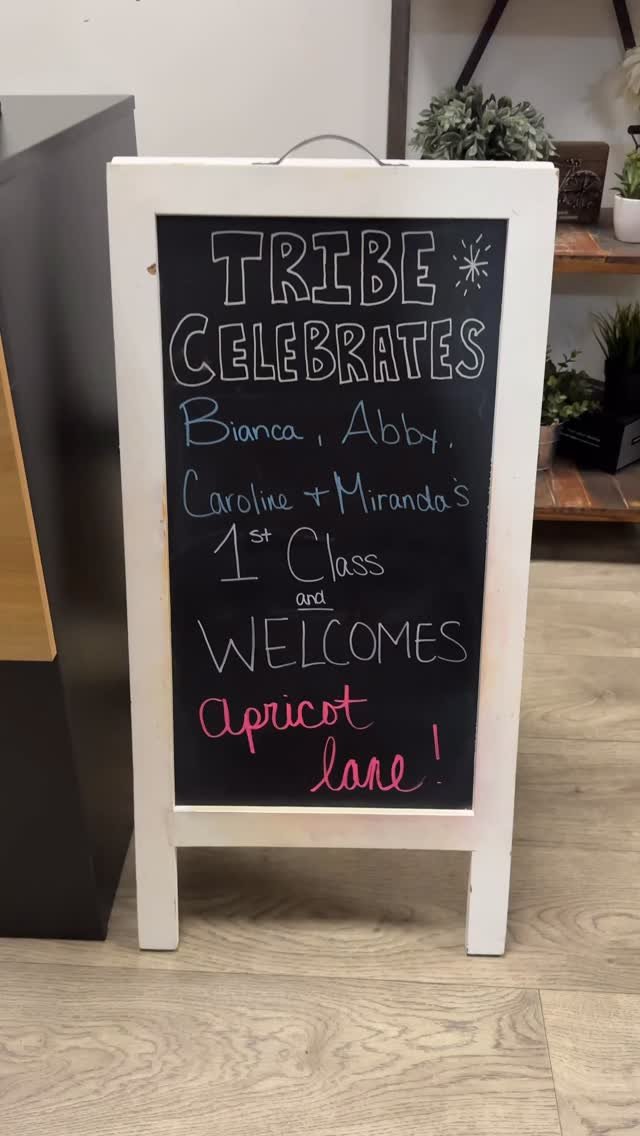 TRIBE
CELEBRATES
Bianca, Abby,
Caroline + Miranda's
1st Class
and
WELCOMES
apricot
lane!